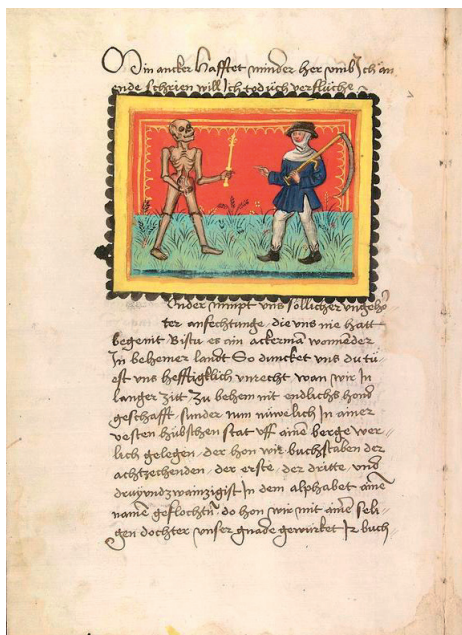 Min ancker hafftet minder her vmb Ich an
ende schrien will Ich tod üch verflüche
Under nimpt vns söllicher vngehö
ter anfechtunge, die vns nie hatt
begenit Bistu es ain ackerman wonender
In behemer landt So duncket vns du tü
est vns hefftigklich vnrecht wan wir In
langer zitt zu behem nit endlichs hond
geschafft, sunder nun nüwelich In ainer
vesten hübschen stat vff aime berge wer
lich gelegen, der hon wir buchstaben der
achtzechenden, der erste, der dritte vnd
drüyundzwaintzigist In dem alphabet aine
name geflochtn, do hon wir mit aime seli
gen dochter vnser gnade gewürket Ir buch